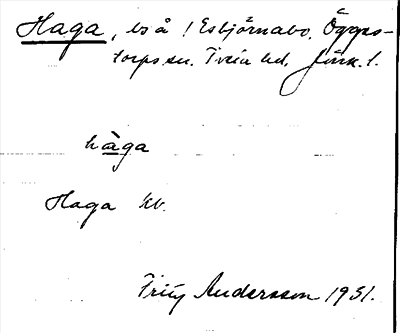 Haga, bs å 1 Esbjörnabo, Ögges-
torps sn. Tveta hd. Jönk. l.
hàga
Haga kv.
Fritz Andersson 1931.